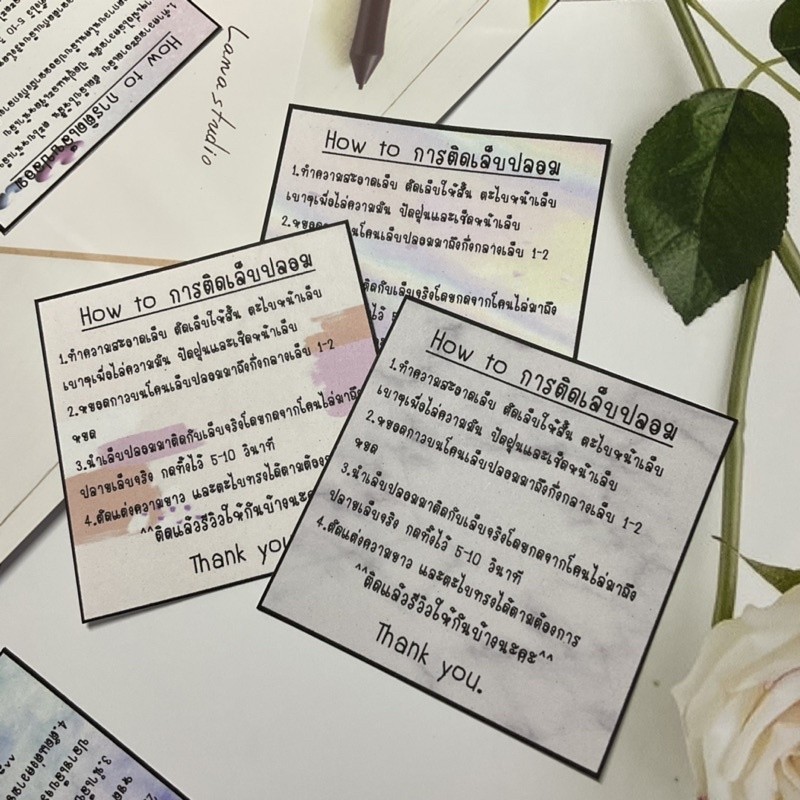 Lamastudio
How to การติดเล็บปลอม
How to การติดเล็บปลอม
1.ทำความสะอาดเล็บ ตัดเล็บให้สั้น ตะไบหน้าเล็บ
เบาๆเพื่อไล่ความมัน ปัดฝุ่นและเช็ดหน้าเล็บ
โคนเล็บปลอมมาถึงกึ่งกลางเล็บ 1-2
How to การติดเล็บปลอม
1.ทำความสะอาดเล็บ ตัดเล็บให้สั้น ตะไบหน้าเล็บ
เบาๆเพื่อไล่ความมัน ปัดฝุ่นและเช็ดหน้าเล็บ
2.หยอดกาวบนโคนเล็บปลอมมาถึงกึ่งกลางเล็บ 1-2
หยด
3.นำเล็บปลอมมาติดกับเล็บจริงโดยกดจากโคนไล่มาถึง
ปลายเล็บจริง กดทิ้งไว้ 5-10 วินาที
4.ตัดแต่งความยาว และตะไบทรงได้ตามต้อง
^^ติดแล้วรีวิวให้กันบ้างนะ
Thank you
How to การติดเล็บปลอม
1.ทำความสะอาดเล็บ ตัดเล็บให้สั้น ตะไบหน้าเล็บ
เบาๆเพื่อไล่ความมัน ปัดฝุ่นและเช็ดหน้าเล็บ
2.หยอดกาวบนโคนเล็บปลอมมาถึงกึ่งกลางเล็บ 1-2
หยด
3.นำเล็บปลอมมาติดกับเล็บจริงโดยกดจากโคนไล่มาถึง
ปลายเล็บจริง กดทิ้งไว้ 5-10 วินาที
4.ตัดแต่งความยาว และตะไบทรงได้ตามต้องการ
^^ติดแล้วรีวิวให้กันบ้างนะคะ^^
Thank you.